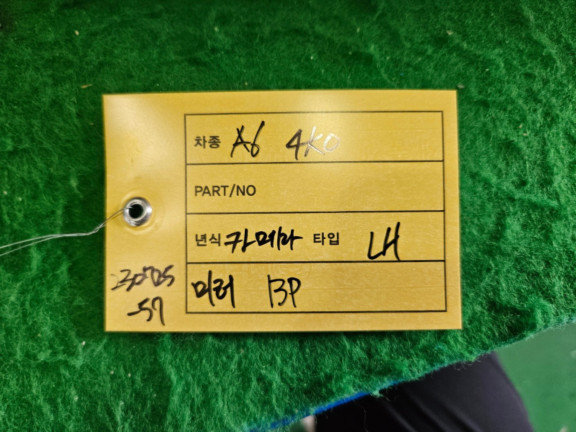 차종 A6 4K0
PART/NO
년식 카메라 타입 LH
미러 13P
-57